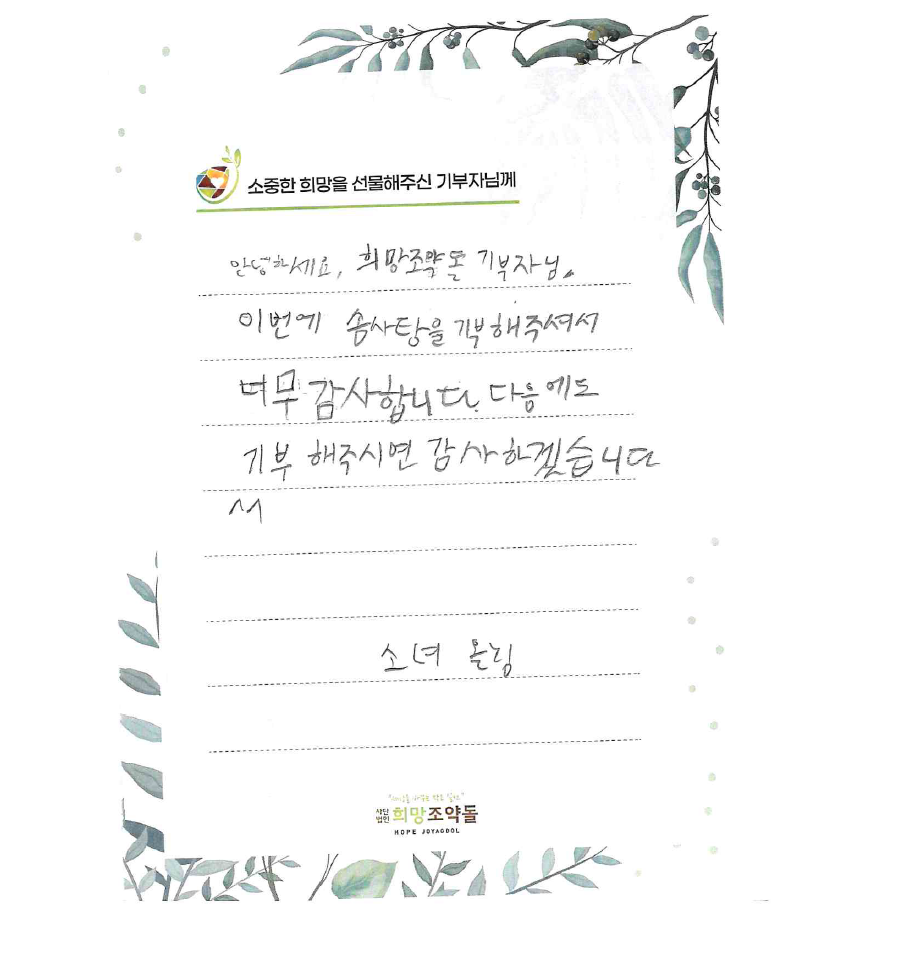 소중한 희망을 선물해주신 기부자님께
안녕하세요, 희망조약돌 기부자님.
이번에 솜사탕을 기부해주셔서
너무 감사합니다. 다음에도
기부 해주시면 감사하겠습니다
소녀 올림
사단
법인 희망조약돌
HOPE JOYAGDOL